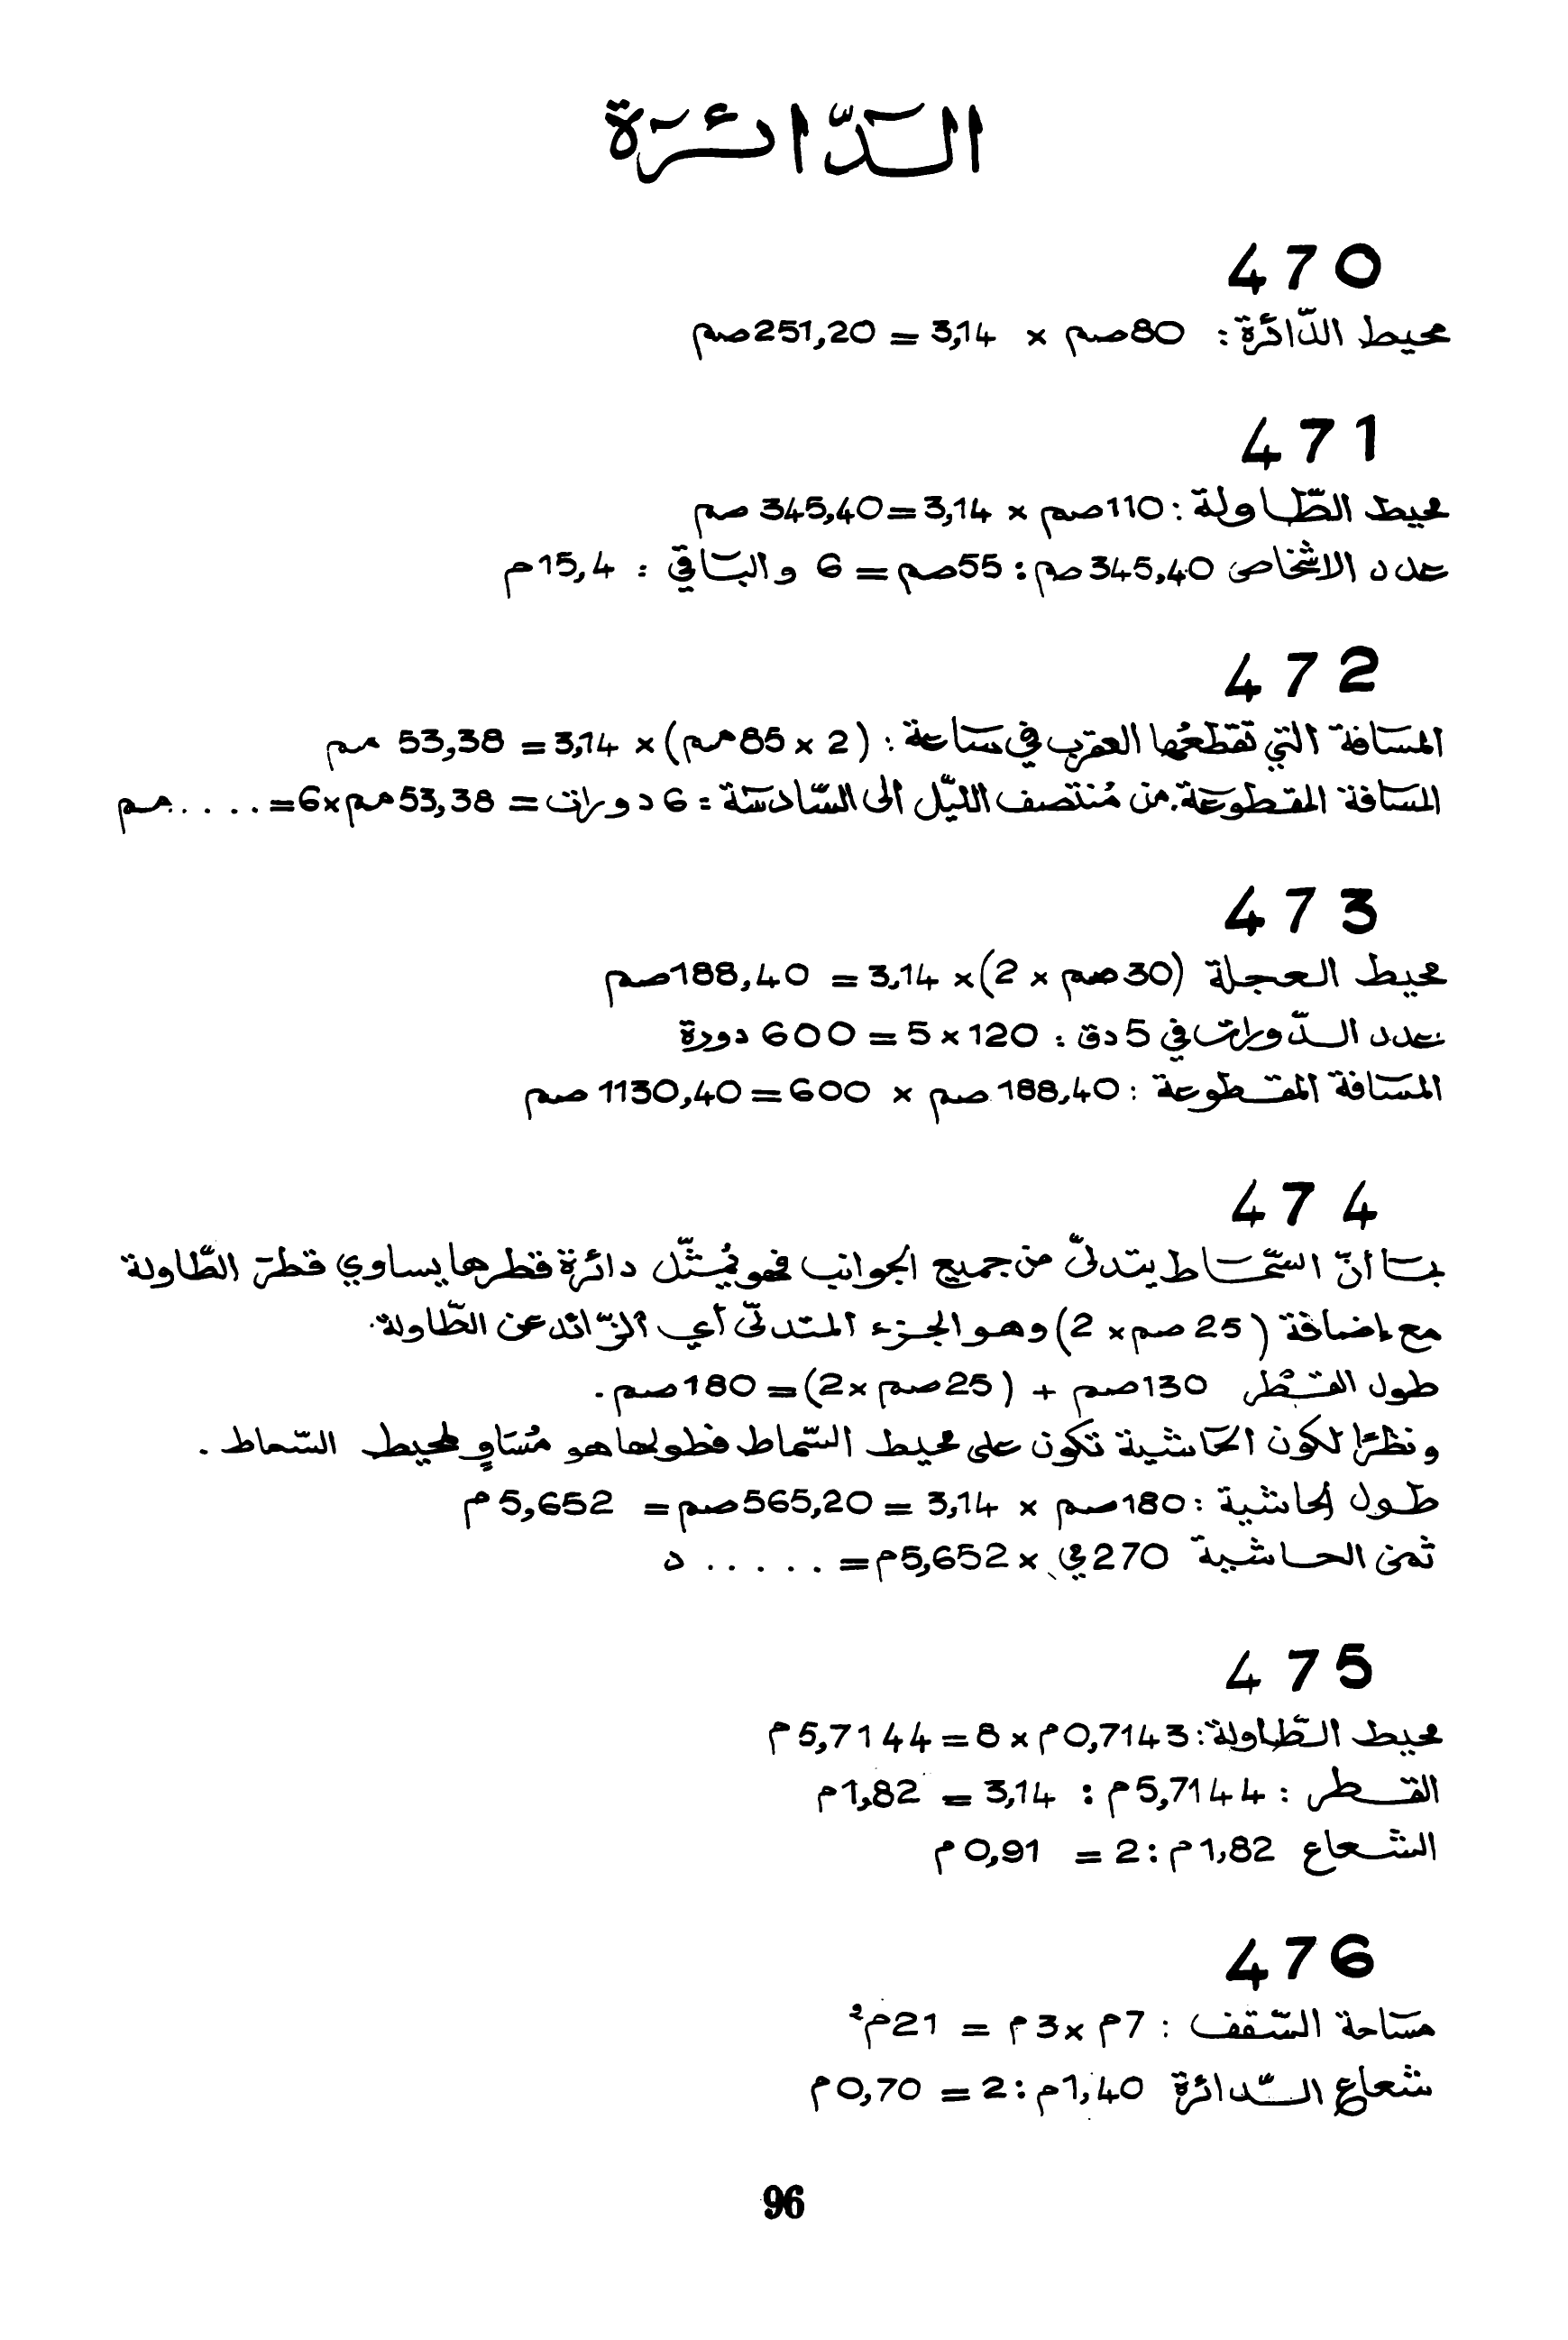 الدّائرة
470
محيط الدّائرة : 80صم × 3,14 = 251,20صم
471
محيط الطّاولة : 110صم × 3,14=345,40 صم
عدد الاشخاص 345,40صم : 55صم = 6 والباقي : 15,4م
472
المسَافة التي تقطعُها العقرب في سَاعة : (2 × 85مم) × 3,14 = 53,38 مم
المسَافة المقطوعَة من مُنتصف الليّل الى السّادسَة : 6 دورات = 53,38مم×6= . . . . مم
473
محيط العجلة (30صم × 2)× 3,14 = 188,40صم
عدد الدّورات في 5 دق : 120 × 5 = 600 دورة
المسَافة المقطوعة : 188,40صم × 600 = 1130,40 صم
474
بمَا أنّ السّمَاط يتدلىّ من جميع الجوانب فهو يُمثّل دائرة قطرها يساوي قطرَ الطّاولة
مع إضافة (25 صم× 2) وهو الجزء المتدلّى أي الزّائد عن الطّاولة.
طول القُطر 130صم + (25صم ×2) = 180صم .
ونظرًا لكون الحَاشية تكون على محيط السّماط فطولها هو مُسَاوٍ لمحيط السّماط .
طول الحاشية : 180صم × 3,14 = 565,20صم = 5,652 م
ثمن الحاشية 270ي × 5,652م = . . . . . د
475
محيط الطّاولة: 0,7143م × 8 = 5,7144م
القطر : 5,7144م : 3,14 = 1,82م
الشعاع 1,82م : 2 = 0,91 م
476
مسَاحة السّقف : 7م ×3م = 21م²
شعاع الدّائرة 1,40م : 2 = 0,70م
96